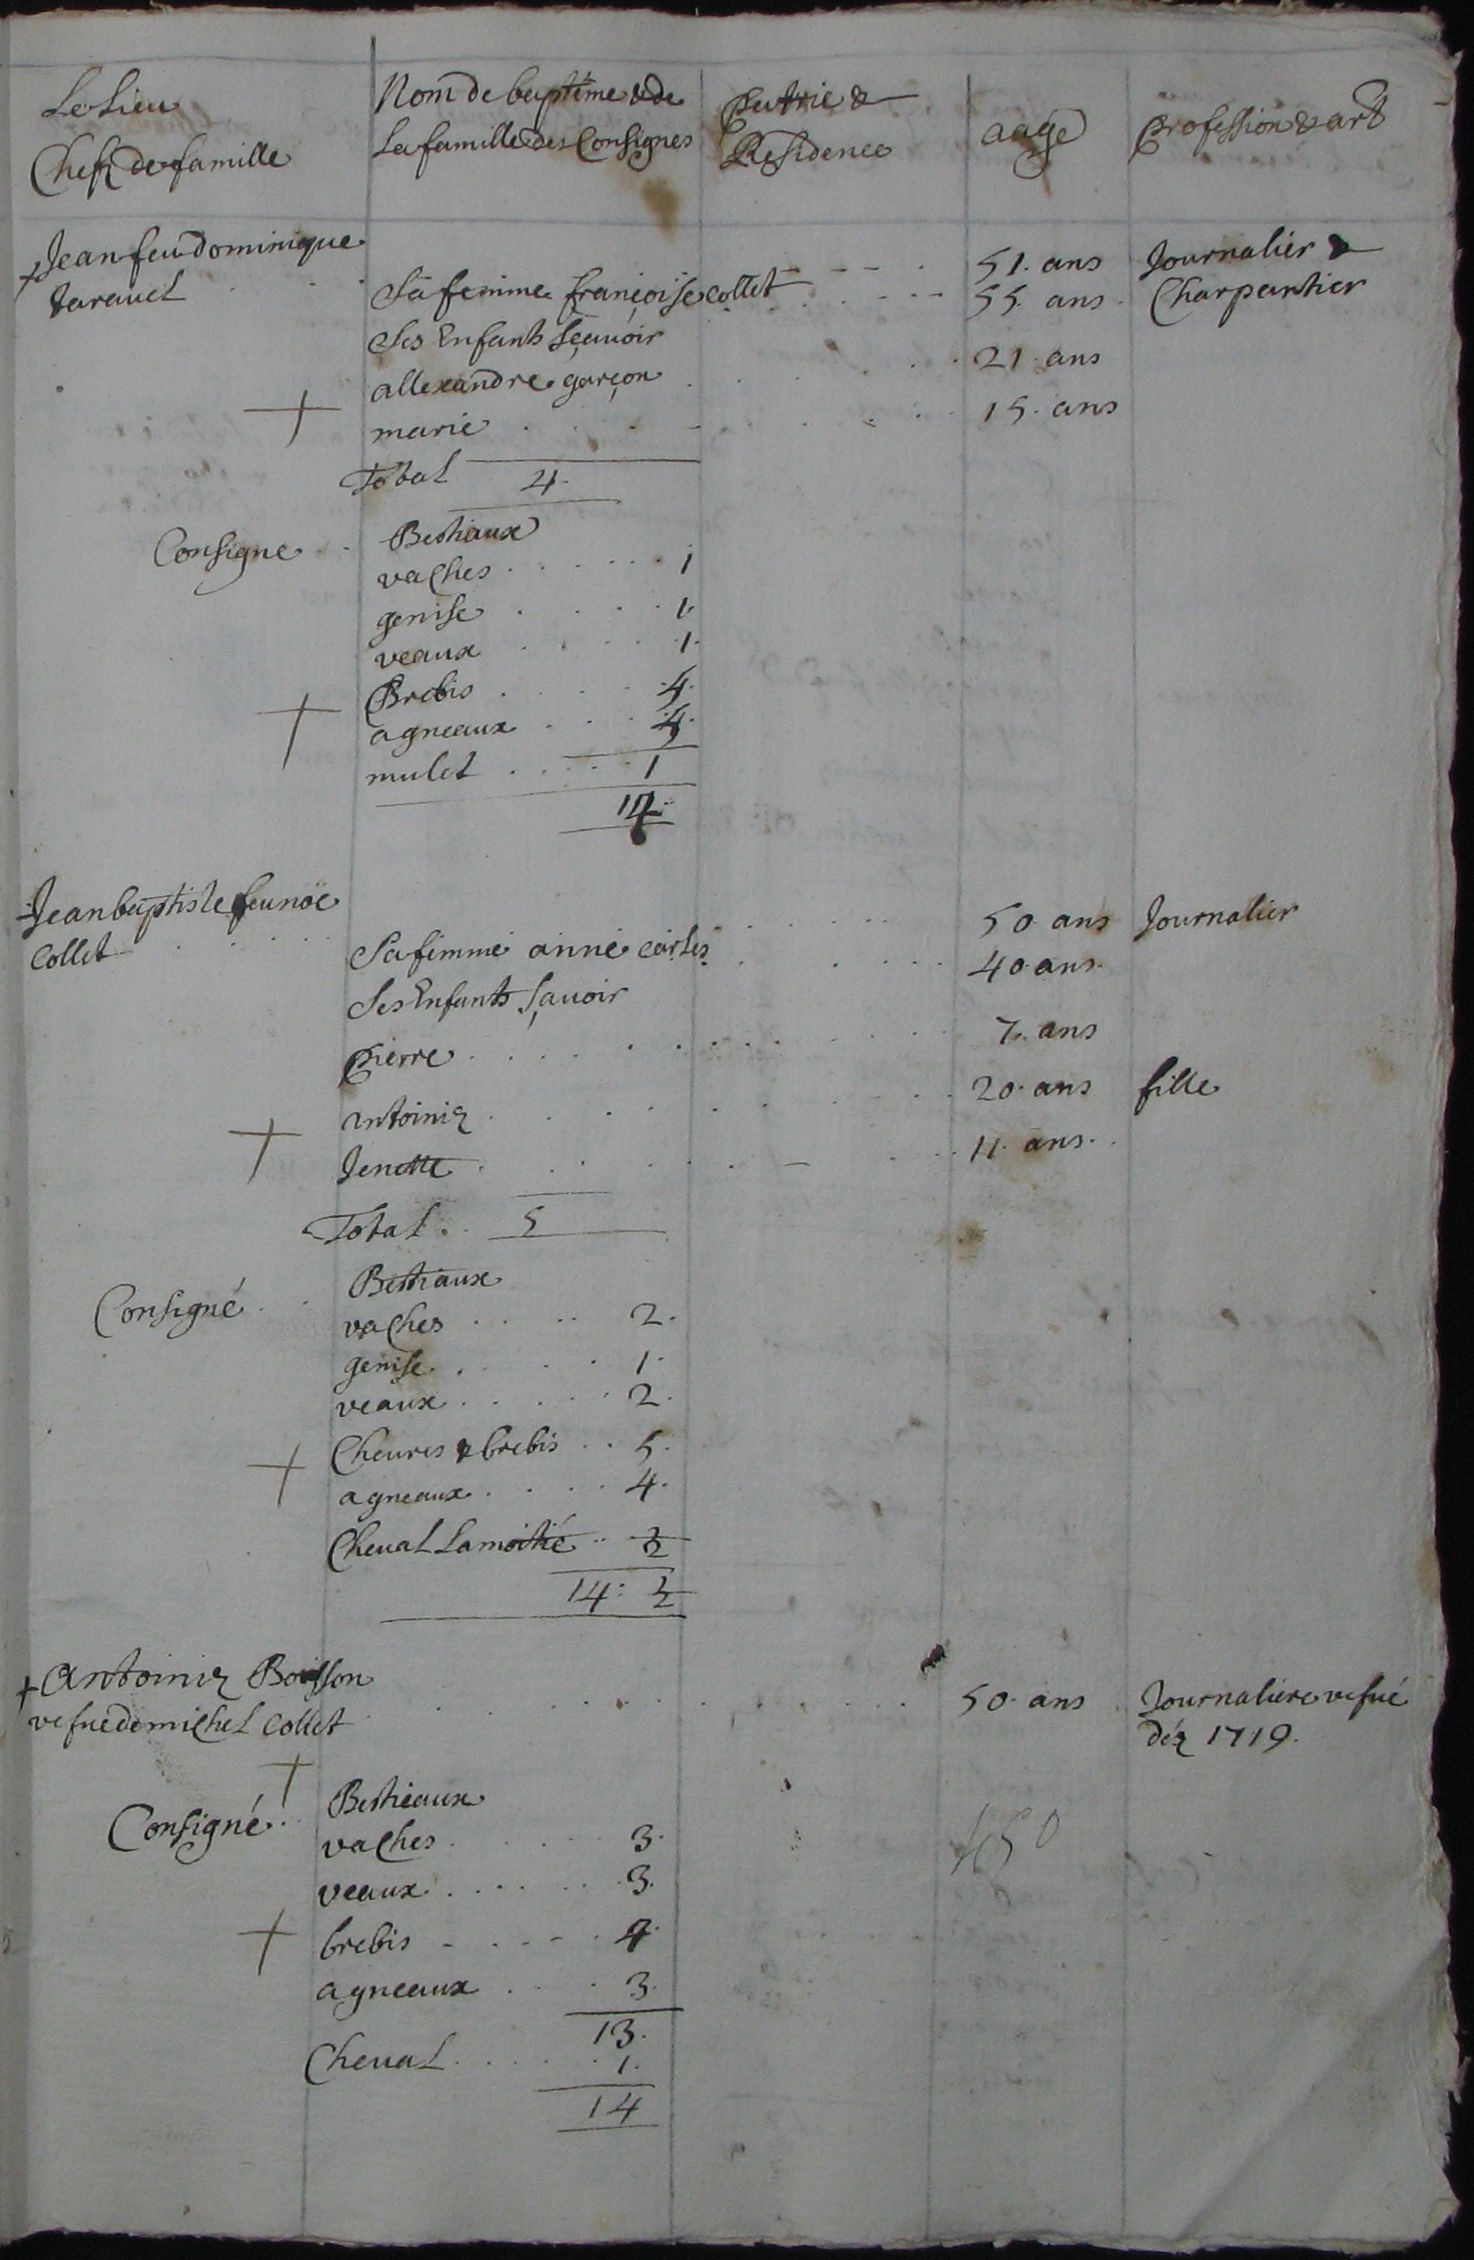 Le Lieu
Chefz de famille
Nom de baptême & de
La famille des Consignes
Patrie &
Residence
aage
profession & art
Jean feu dominique
taravel
51. ans Journalier &
Sa femme françoise collet 55. ans Charpantier
Ses Enfants Sçauoir
allexandre garçon 21. ans
marie 15. ans
Total 4.
Consigne Bestiaux
vaches 1
genise 1.
veaux 1.
Brebis 4.
agneaux 4.
mulet 1
12
Jean baptiste feu noë
Collet
50 ans Journalier
Sa femme anne carles 40 ans.
Ses Enfants Sçauoir
Pierre 7. ans
antoiniz 20. ans fille
Jenette 11. ans.
Total 5
Consigné Bestiaux
vaches 2.
genise 1.
veaux 2.
Cheures & brebis 5.
agneaux 4.
Cheual La moitié ½
14: ½
Antoiniz Boisson
vefue de michel Collet
50. ans Journaliere vefue
déz 1719.
Consigné. Bestieaux
vaches 3.
veaux 3.
brebis 4.
agneaux 3.
13.
Cheual 1.
14